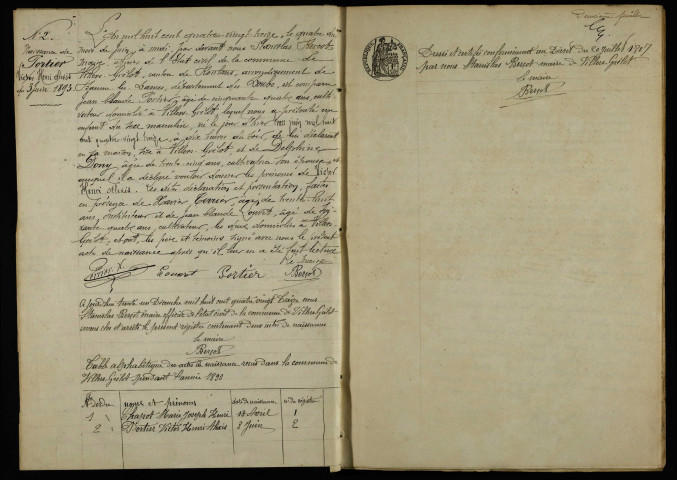 N° 2.
Naissance de
Portier
Victor Henri Alexis
du 3 Juin 1893
L'an mil huit cent quatre vingt treize, le quatre du
mois de Juin, à midi, par devant nous Stanislas Bersot
maire officier de l'Etat Civil de la commune de
Villers-Grélot, canton de Roulans, arrondissement de
Baume les Dames, département du Doubs, est comparu
Jean Claude Portier, âgé de cinquante quatre ans, culti-
vateur domicilié à Villers-Grélot, lequel nous a présenté un
enfant du sexe masculin, né le jour d'hier trois juin mil huit
cent quatre vingt treize, à six heures du soir, de lui déclarant
en sa maison, sise à Villers Grélot et de Delphine
Dony, âgée de trente cinq ans, cultivatrice son épouse, et
auquel il a déclaré vouloir donner les prénoms de Victor
Henri Alexis. Les dites déclaration et présentation faites
en présence de Xavier Terrier, âgé de trente huit
ans, instituteur et de Jean Claude Louvet, âgé de
quatre ans, cultivateur, les deux domiciliés à Villers
Grélot, et ont, les père et témoins signé avec nous le présent
acte de naissance après qu'il leur en a été fait lecture
Le maire
Terrier X. Louvet Portier Bersot
Aujourd'hui trente un Décembre mil huit cent quatre vingt treize nous
Stanislas Bersot maire officier de l'état civil de la commune de Villers-Grélot
avons clos et arrêté le présent registre contenant deux actes de naissance
Le maire
Bersot
Table alphabétique des actes de naissance reçus dans la commune de
Villers-Grélot pendant l'année 1893
N° d'ordre noms et prénoms date de naissance n° du registre
1 Chapot Marie Joseph Henri 18 Avril 1
2 Portier Victor Henri Alexis 3 Juin 2
Deuxième feuillet
REPUBLIQUE FRANÇAISE
Dressé et certifié conformément au Décret du 20 juillet 1807
par nous Stanislas Bersot maire de Villers-Grélot
Le maire
Bersot